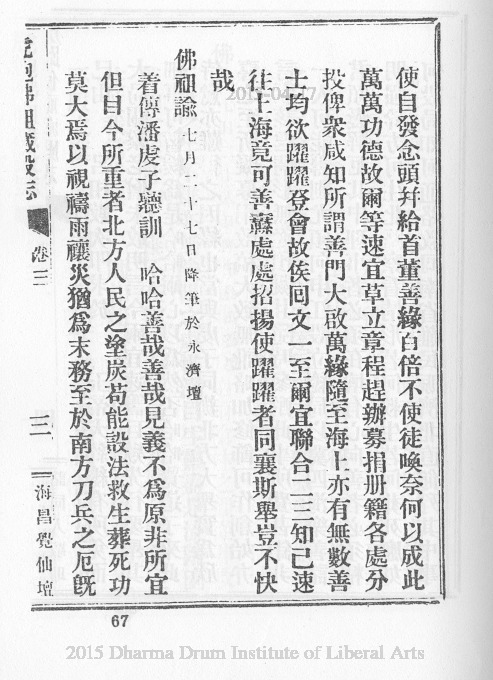 使自發念頭幷給首董善緣百倍不使徒喚奈何以成此
萬萬功德故爾等速宜草立章程趕辦募捐册籍各處分
投俾衆咸知所謂善門大啟萬緣隨至海上亦有無數善
士均欲躍躍登會故俟囘文一至爾宜聯合二三知已速
往上海竟可善灋處處招揚使躍躍者同襄斯舉豈不快
哉
佛祖諭 七月二十七日降筆於永濟壇
着傳潘虔子聽訓 哈哈善哉善哉見義不爲原非所宜
但目今所重者北方人民之塗炭苟能設法救生葬死功
莫大焉以視禱雨禳災猶爲末務至於南方刀兵之厄旣
虎跑佛祖藏殿志 卷三 三 海昌覺仙壇
67
2015 Dharma Drum Institute of Liberal Arts